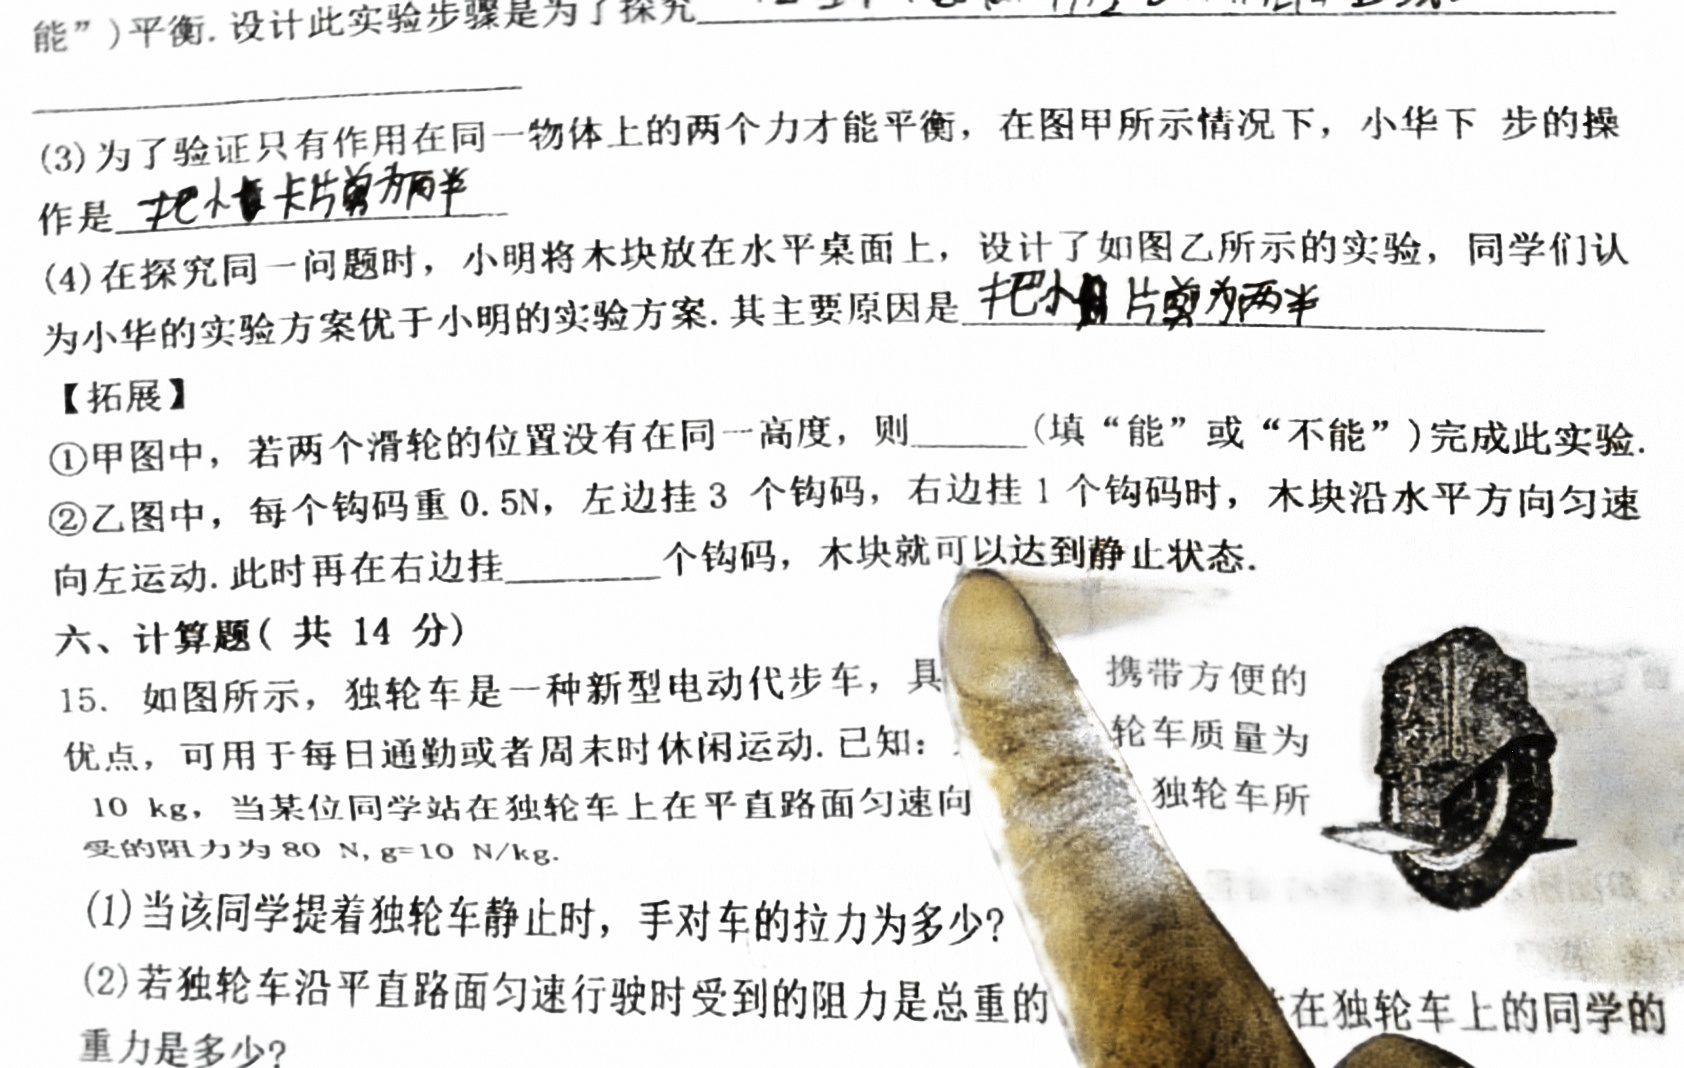 能”)平衡.设计此实验步骤是为了探究
(3)为了验证只有作用在同一物体上的两个力才能平衡，在图甲所示情况下，小华下 步的操
作是 把小卡片剪为两半
(4)在探究同一问题时，小明将木块放在水平桌面上，设计了如图乙所示的实验，同学们认
为小华的实验方案优于小明的实验方案.其主要原因是 把小 片剪为两半
【拓展】
①甲图中，若两个滑轮的位置没有在同一高度，则______(填“能”或“不能”)完成此实验.
②乙图中，每个钩码重0.5N，左边挂3 个钩码，右边挂1个钩码时，木块沿水平方向匀速
向左运动.此时再在右边挂________个钩码，木块就可以达到静止状态.
六、计算题( 共 14 分)
15. 如图所示，独轮车是一种新型电动代步车，具 携带方便的
优点，可用于每日通勤或者周末时休闲运动.已知： 轮车质量为
10 kg，当某位同学站在独轮车上在平直路面匀速向 独轮车所
受的阻力为80 N,g=10 N/kg.
(1)当该同学提着独轮车静止时，手对车的拉力为多少?
(2)若独轮车沿平直路面匀速行驶时受到的阻力是总重的 在独轮车上的同学的
重力是多少?